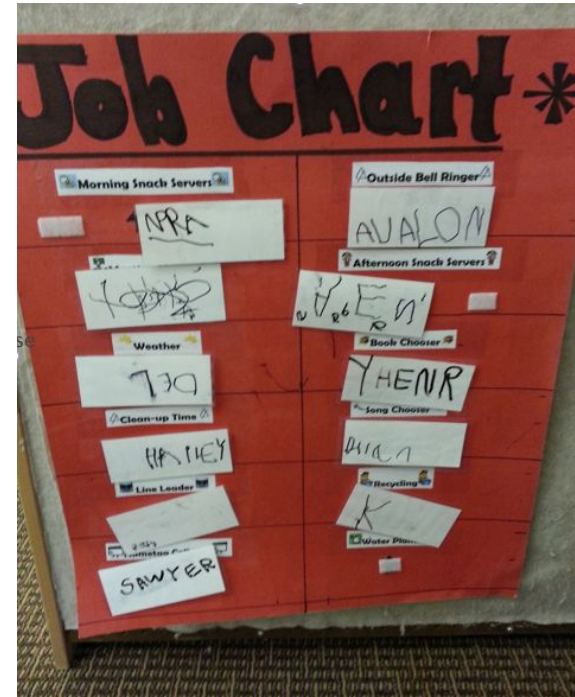 Job Chart *
Morning Snack Servers
NRA
Weather
DEL
Clean-up Time
HAILEY
Line Leader
SAWYER
Outside Bell Ringer
AVALON
Afternoon Snack Servers
Book Chooser
YHENR
Song Chooser
Recycling
K
Water